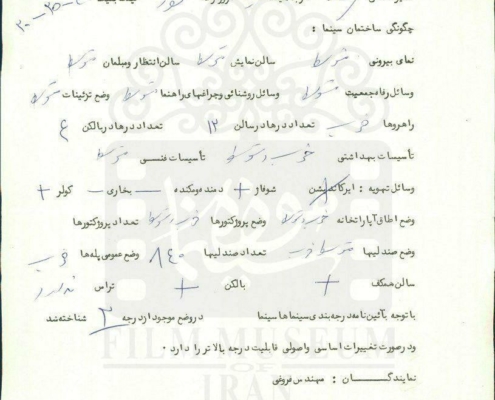 ۲۰-۲۵-۳۰
چگونگی ساختمان سینما :
نمای بیرونی متوسط سالن نمایش متوسط سالن انتظار و مبلمان متوسط
وسائل رفاه جمعیت متوسط وسائل روشنائی و چراغهای راهنما متوسط وضع تزئینات متوسط
راهروها خوب تعداد درها در سالن ۱۳ تعداد درها در بالکن ۴
تأسیسات بهداشتی خوب و متوسط تأسیسات فنی متوسط
وسائل تهویه : ایرکاندیشن شوفاژ + دمنده و مکنده — بخاری — کولر +
وضع اطاق آپاراتخانه خوب و متوسط وضع پروژکتورها خوب و متوسط تعداد پروژکتورها
وضع صندلیها متوسط تعداد صندلیها ۸۴۰ وضع عمومی پله‌ها خوب
سالن همکف + بالکن + تراس ندارد
با توجه بآئین نامه درجه بندی سینماها سینما در وضع موجود از درجه ۳ شناخته شد
و در صورت تغییرات اساسی و اصولی قابلیت درجه بالاتر را دارد .
نمایندگان : مهندس فروغی
FILM MUSEUM
OF
IRAN